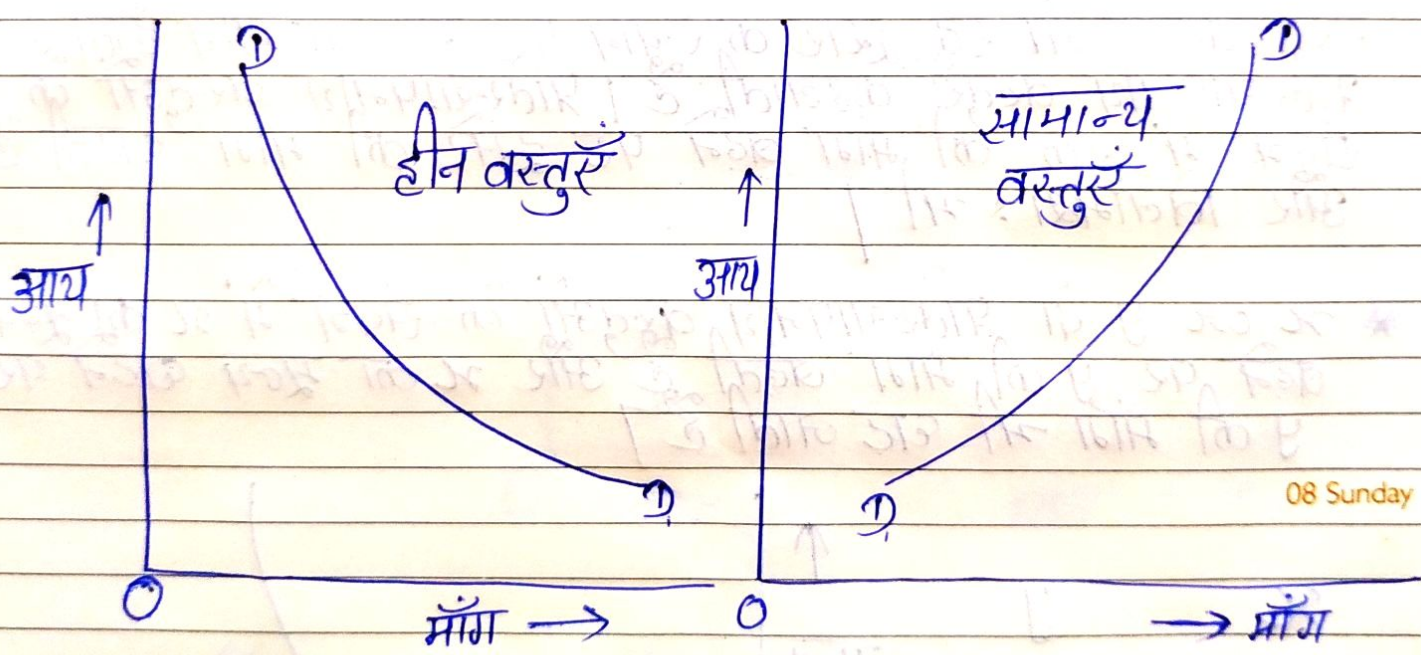 D
हीन वस्तुएँ
आय
D
O
माँग
D
सामान्य
वस्तुएँ
आय
D
08 Sunday
O
माँग